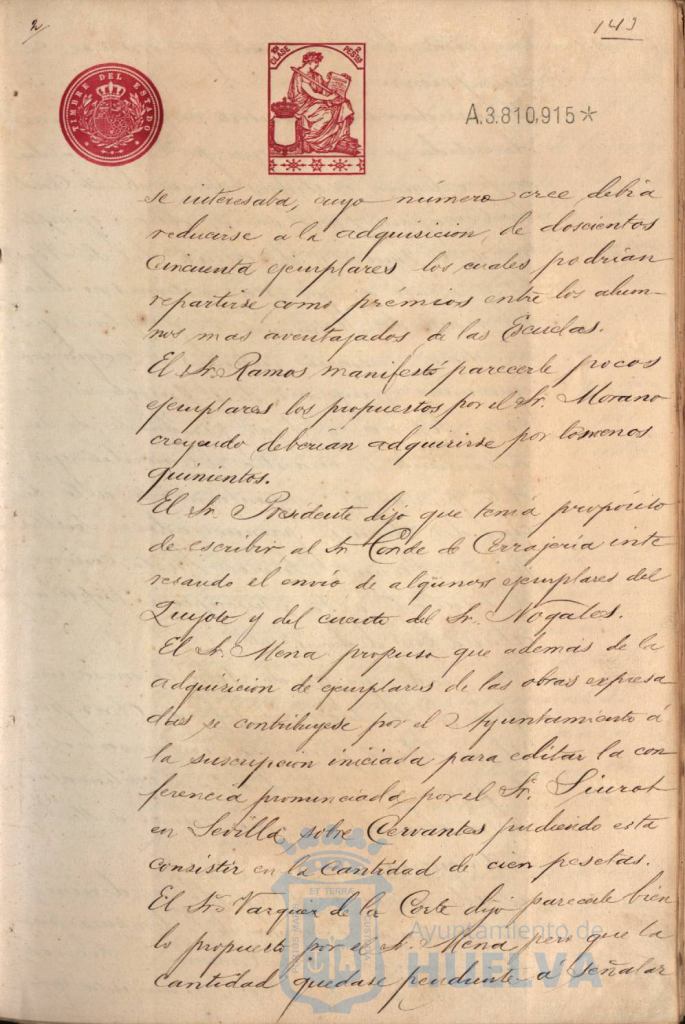 2/
143
TIMBRE DEL ESTADO
CLASE
PESTAS
A.3.810,915*
se interesaba, cuyo número cree debia
reducirse á la adquisicion de doscientos
cincuenta ejemplares los cuales podrían
repartirse como prémios entre los alum-
nos mas aventajados de las Escuelas.
El Sr. Ramos manifestó parecerle pocos
ejemplares los propuestos por el Sr. Morano
creyendo deberian adquirirse por lo menos
quinientos.
El Sr. Presidente dijo que tenia propósito
de escribir al Sr. Conde de Cerrajería inte
resando el envío de algunos ejemplares del
Quijote y del cuento del Sr. Nogales.
El Sr. Mena propuso que además de la
adquisicion de ejemplares de las obras expresa
das se contribuyese por el Ayuntamiento á
la suscripcion iniciada para editar la con
ferencia pronunciada por el Sr. Siurot
en Sevilla sobre Cervantes pudiendo esta
consistir en la cantidad de cien pesetas.
El Sr. Vazquez de la Corte dijo parecerle bien
lo propuesto por el Sr. Mena pero que la
cantidad quedase pendiente á señalar
ET TERRA
Ayuntamiento de
HUELVA